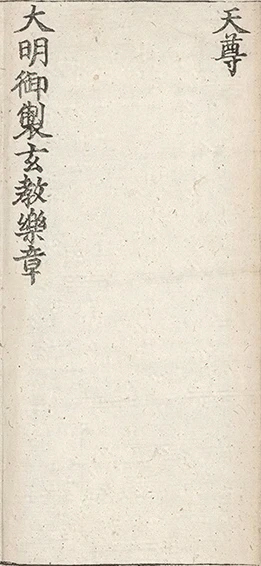 天尊
大明御製玄教樂章